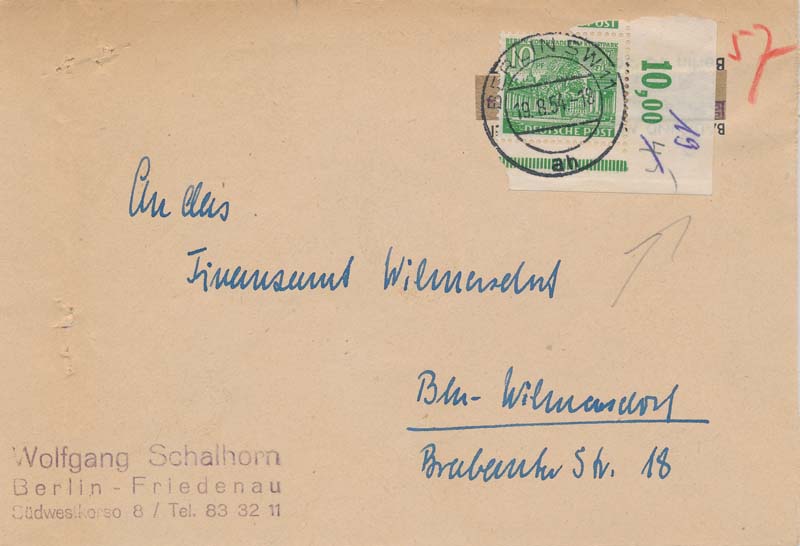 POST
10
DEUTSCHE POST
BERLIN SW 11
19.8.54-18
ah
10,00
19
45
57
An das
Finanzamt Wilmersdorf
Bln-Wilmersdorf
Brabanter Str. 18
Wolfgang Schalhorn
Berlin-Friedenau
Südwestkorso 8 / Tel. 83 32 11